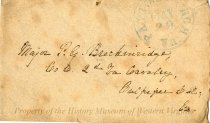 Major P. G. Breckinridge,
Co E. 2nd Va Cavalry,
Culpeper Ct.
Va.
Property of the History Museum of Western Vi